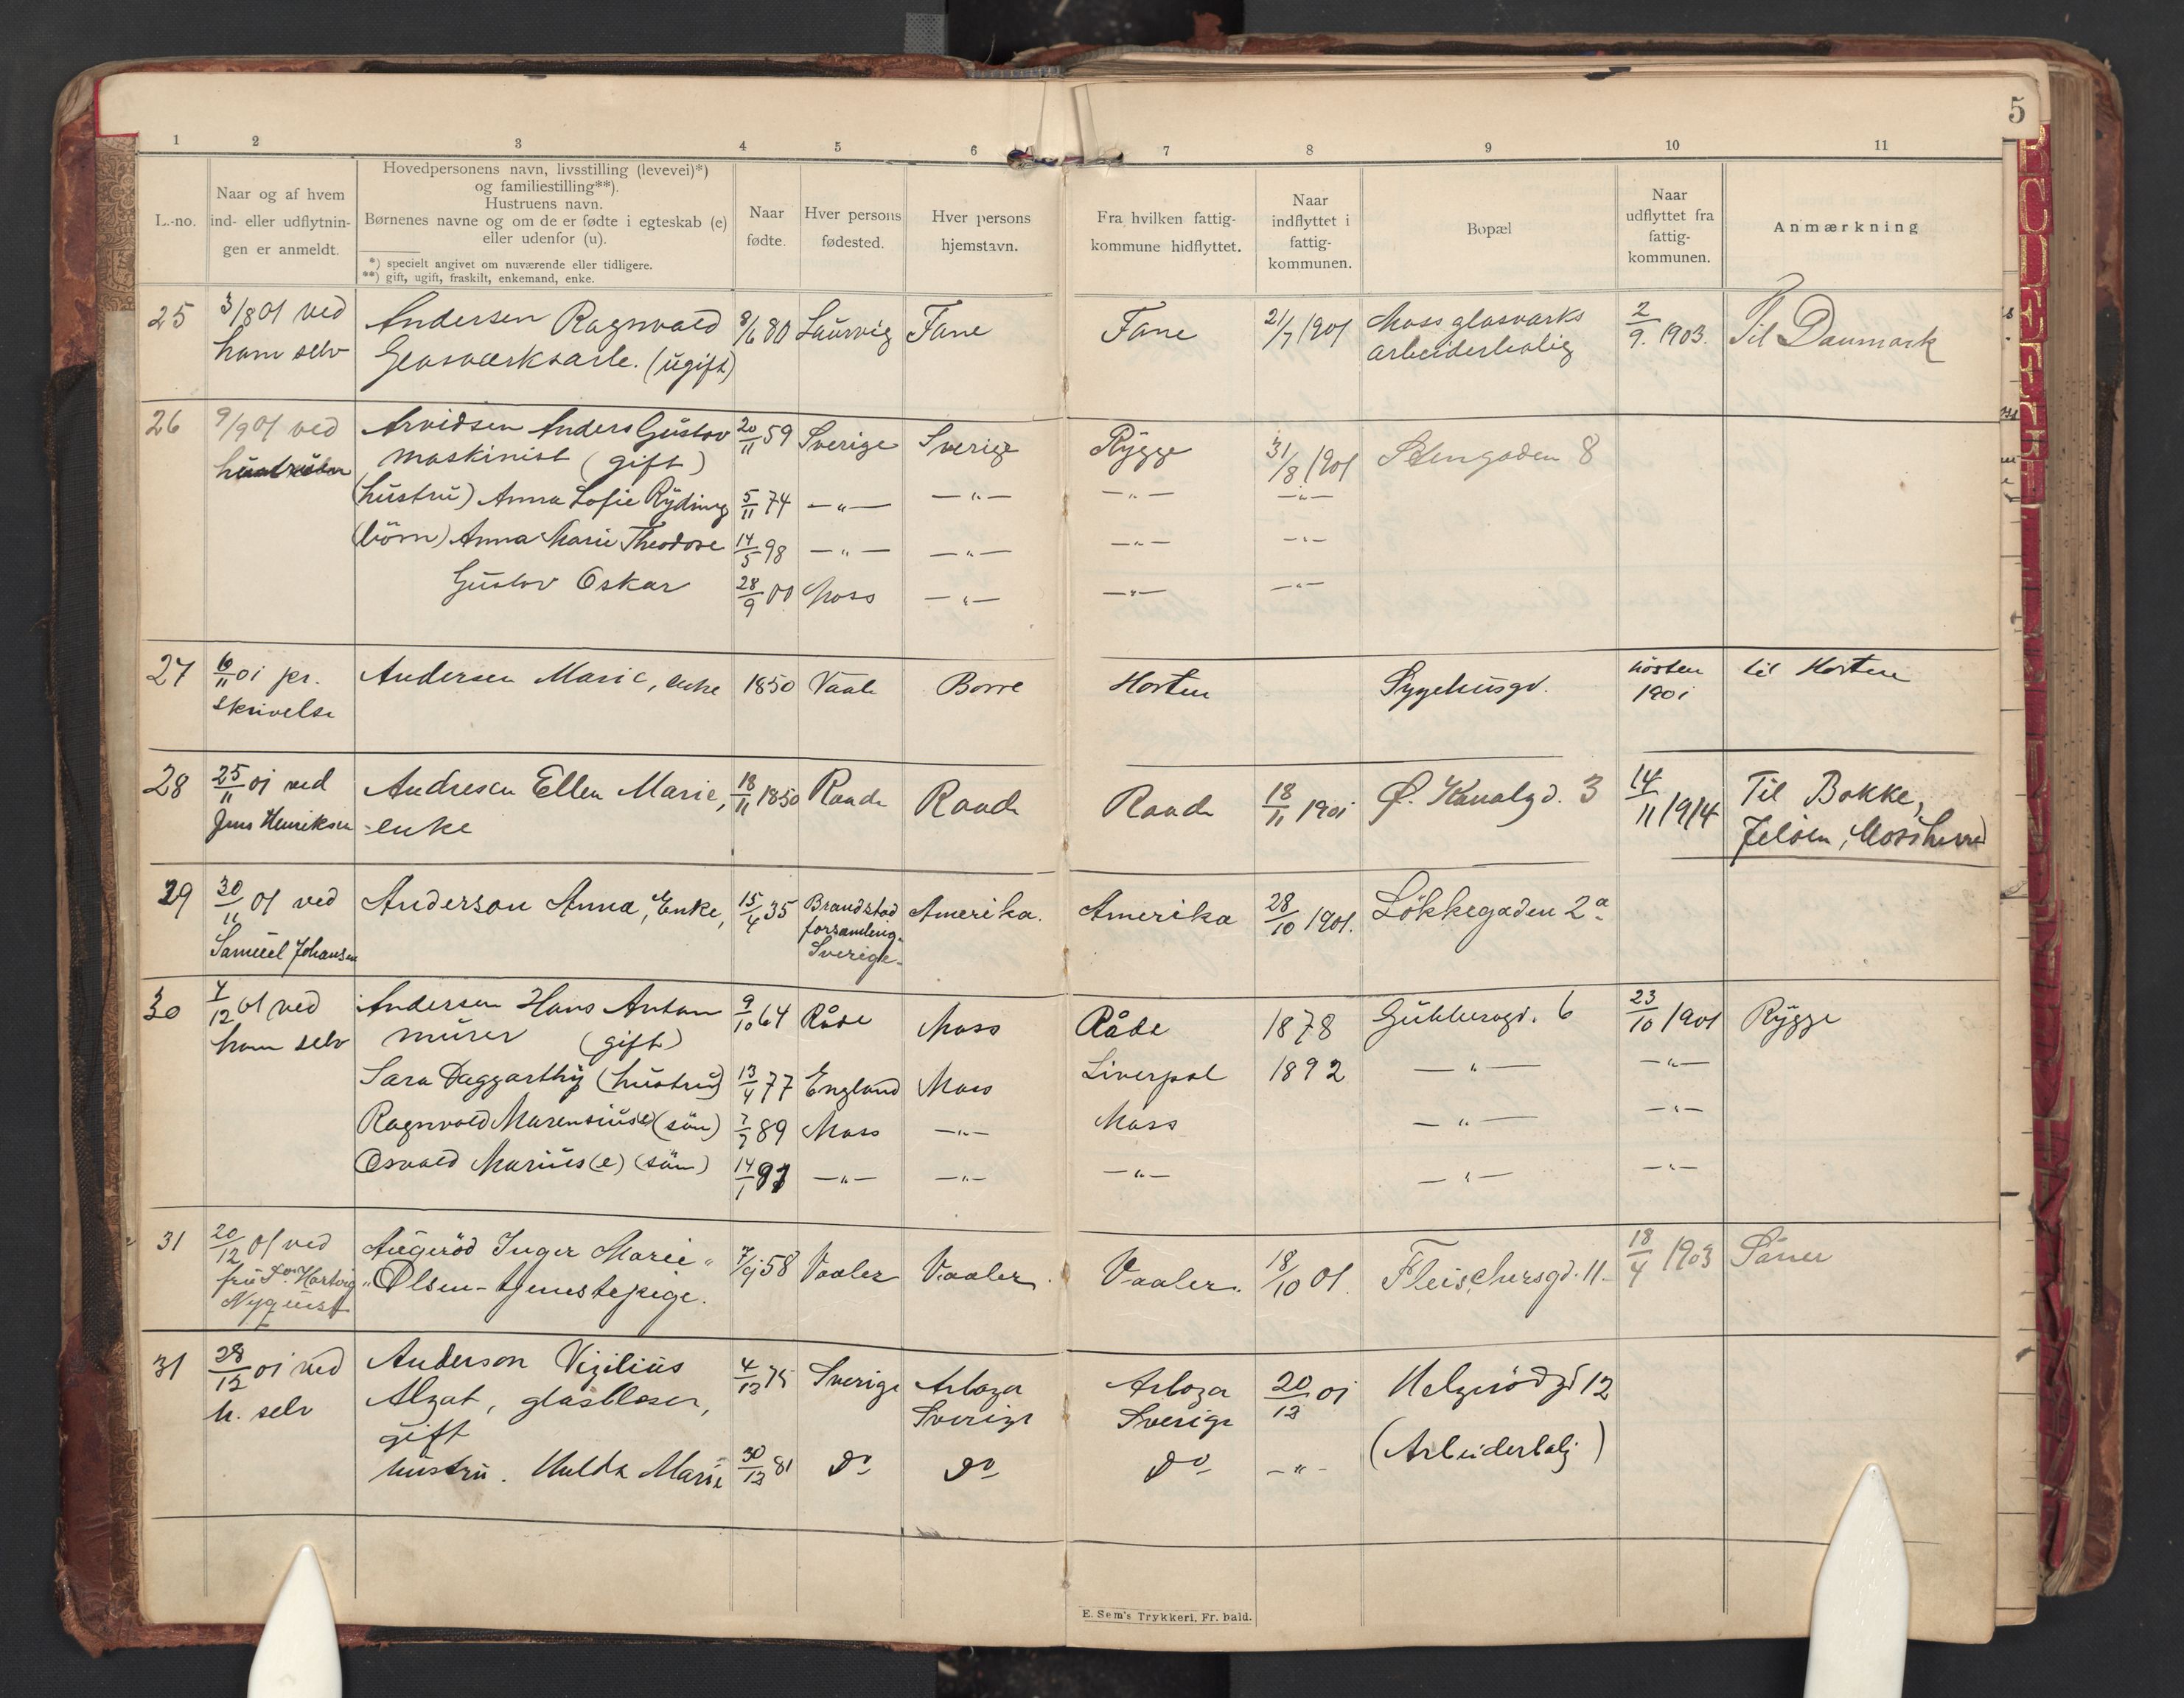 5
1 2 3 4 5 6 7 8 9 10 11
L.-no.
Naar og af hvem
ind- eller udflytnin-
gen er anmeldt.
Hovedpersonens navn, livsstilling (levevei)*)
og familiestilling**).
Hustruens navn.
Børnenes navne og om de er fødte i egteskab (e)
eller udenfor (u).
*) specielt angivet om nuværende eller tidligere.
**) gift, ugift, fraskilt, enkemand, enke.
Naar
fødte.
Hver persons
fødested.
Hver persons
hjemstavn.
Fra hvilken fattig-
kommune hidflyttet.
Naar
indflyttet i
fattig-
kommunen.
Bopæl
Naar
udflyttet fra
fattig-
kommunen.
Anmærkning
25 3/8 01 ved Andersen Ragnvald 8/6 80 Laurvig Fane Fane 21/7 1901 Moss glasværks 2/9. 1903. Til Danmark
ham selv Glasværksarb. (ugift) arbeiderbolig
26 9/9 01 ved Arvidsen Anders Gustav 20/11 59 Sverige Sverige Rygge 31/8 1901 Stengaden 8
hustruen maskinist (gift)
(hustru) Anna Sofie Ryding 5/11 74 —"— —"— —"— —"—
(börn) Anna Marie Theodore 14/5 98 —"— —"— —"— —"—
Gustav Oskar 28/9 00 Moss —"— —"— —"—
27 6/11 01 pr. Andersen Marie, enke 1850 Vaale Borre Horten Sygehusgd. hösten til Horten
skrivelse 1901
28 25/11 01 ved Andresen Ellen Marie, 18/11 1850 Raade Raade Raade 18/11 1901 Ø. Kanalgd. 3 14/11 1914 Til Bokke,
Jens Henriksen enke Jelöen, Mossherred
29 30/11 01 ved Anderson Anna, Enke, 15/4 35 Brandstad Amerika. Amerika 28/10 1901. Lökkegaden 2a
forsamling.
Samuel Johansen Sverige.
30 4/12 01 ved Andersen Hans Anton 9/10 64 Råde Moss Råde 1878 Gühlersgd. 6 23/10 1901 Rygge
ham selv murer (gift)
Sara Daggarthy (hustru) 13/4 77 England Moss Liverpol 1892 —"— —"—
Ragnvald Marensius (e) (sön) 7/7 89 Moss —"— Moss —"— —"—
Osvald Marius (e) (sön) 14/1 91 —"— —"— —"— —"— —"—
31 20/12 01 ved Augeröd Inger Marie 7/9 58 Vaaler Vaaler Vaaler. 18/10 01. Fleischersgd. 11. 18/4 1903 Såner
fru Hartvig Olsen - tjenestepige.
Nyquist
31 28/12 01 ved Anderson Vigilius 4/12 75 Sverige Arboga Arboga 20/12 01 Helgerödgd 12
h. selv Algat, glasblæser, Sverige Sverige
gift (Arbeiderbolj)
hustru. Hulda Marie 30/12 81 do do do —"—
E. Sem's Trykkeri, Fr. hald.